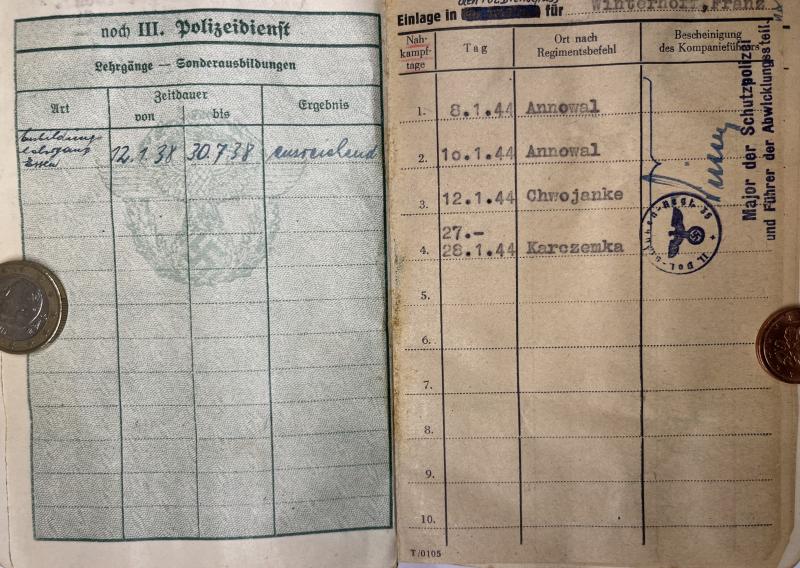 noch III. Polizeidienst
Lehrgänge — Sonderausbildungen
Art
Zeitdauer
von
bis
Ergebnis
Essen
12.1.38
30.7.38
ausreichend
Einlage in
für
Winterhoff, Franz
Nah-
kampf-
tage
Tag
Ort nach
Regimentsbefehl
Bescheinigung
des Kompanieführers
1. 8.1.44 Annowal
2. 10.1.44 Annowal
3. 12.1.44 Chwojanke
27.-
4. 28.1.44 Karczemka
5.
6.
7.
8.
9.
10.
Major der Schutzpolizei
und Führer der Abwicklungsstelle
T/0105